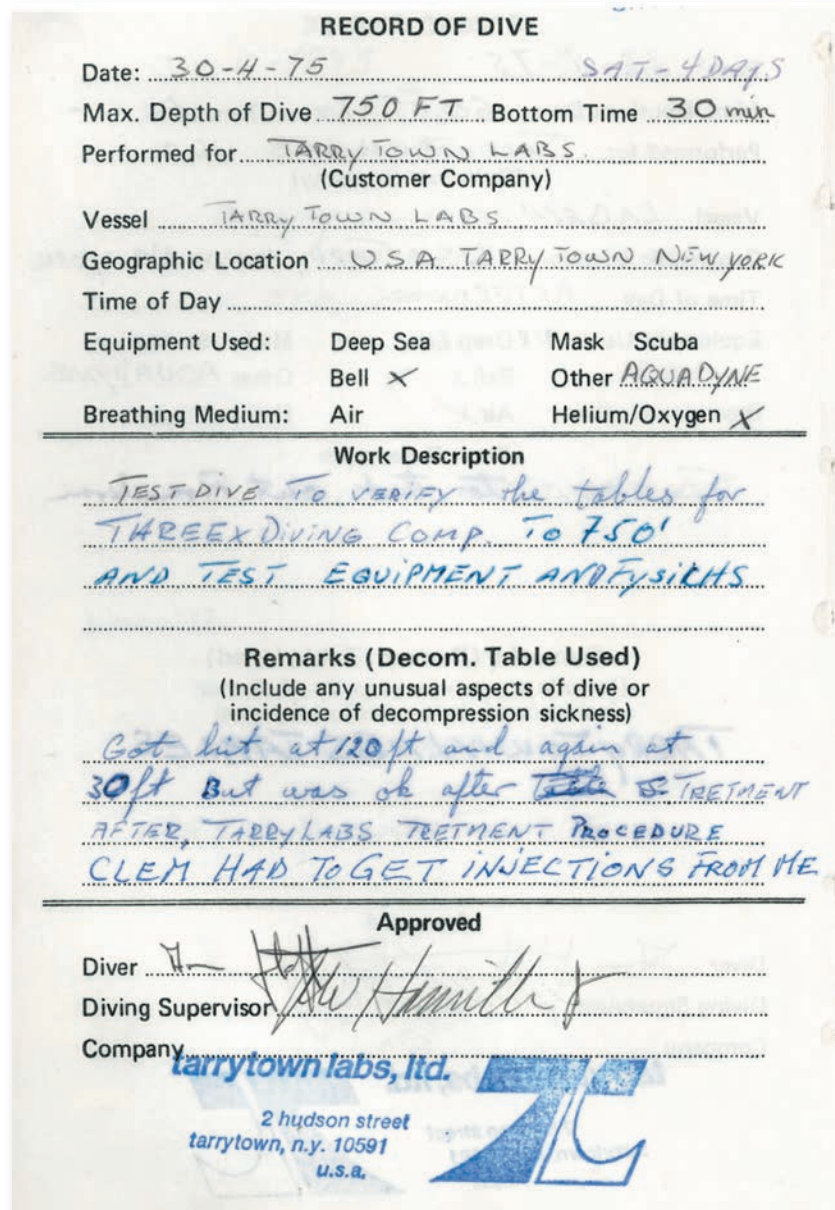 RECORD OF DIVE
Date: 30-4-75 SAT - 4 DAYS
Max. Depth of Dive 750 FT Bottom Time 30 min
Performed for TARRY TOWN LABS
(Customer Company)
Vessel TARRY TOWN LABS
Geographic Location USA TARRY TOWN NEW YORK
Time of Day
Equipment Used: Deep Sea Mask Scuba
Bell X Other AQUADYNE
Breathing Medium: Air Helium/Oxygen X
Work Description
TEST DIVE TO VERIFY the tables for
THREEX DIVING COMP. TO 750'
AND TEST EQUIPMENT AND FYSICHS
Remarks (Decom. Table Used)
(Include any unusual aspects of dive or
incidence of decompression sickness)
Got hit at 120 ft and again at
30 ft But was ok after TRETMENT
AFTER, TARRY LABS TRETMENT PROCEDURE
CLEM HAD TO GET INJECTIONS FROM ME
Approved
Diver
Diving Supervisor
Company
tarrytown labs, ltd.
2 hudson street
tarrytown, n.y. 10591
u.s.a.